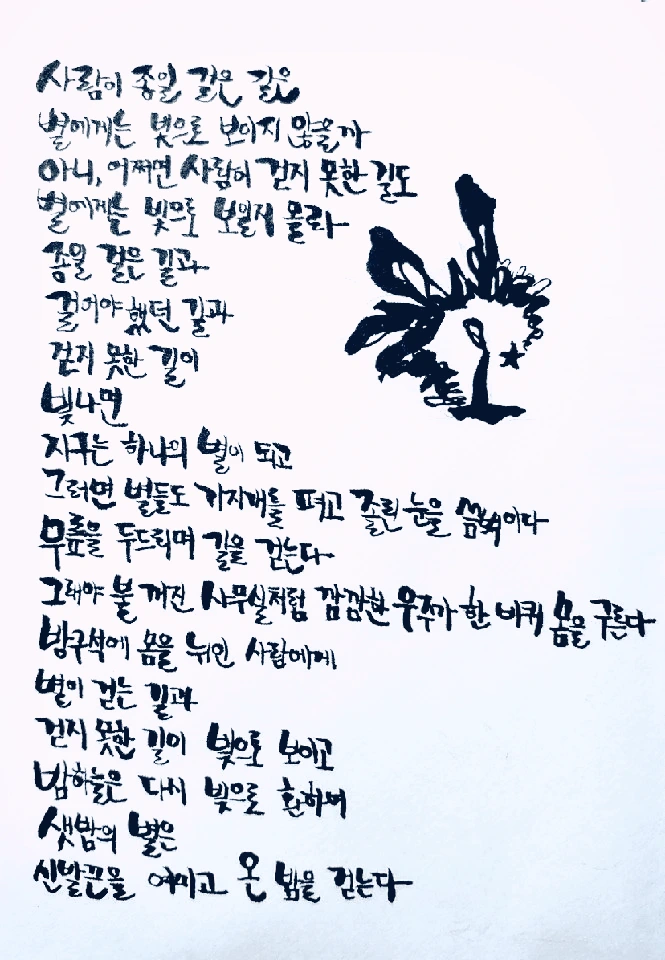 사람이 종일 걸은 길은
별에게는 빛으로 보이지 않을까
아니, 어쩌면 사람이 걷지 못한 길도
별에게는 빛으로 보일지 몰라
종일 걸은 길과
걸어야 했던 길과
걷지 못한 길이
빛나면
지구는 하나의 별이 되고
그러면 별들도 기지개를 펴고 졸린 눈을 씀벅이다
무릎을 두드리며 길을 걷는다
그래야 불 꺼진 사무실처럼 깜깜한 우주가 한 바퀴 몸을 구른다
방구석에 몸을 뉘인 사람에게
별이 걷는 길과
걷지 못한 길이 빛으로 보이고
밤하늘은 다시 빛으로 환하여
샛밤의 별은
신발끈을 여미고 온 밤을 걷는다